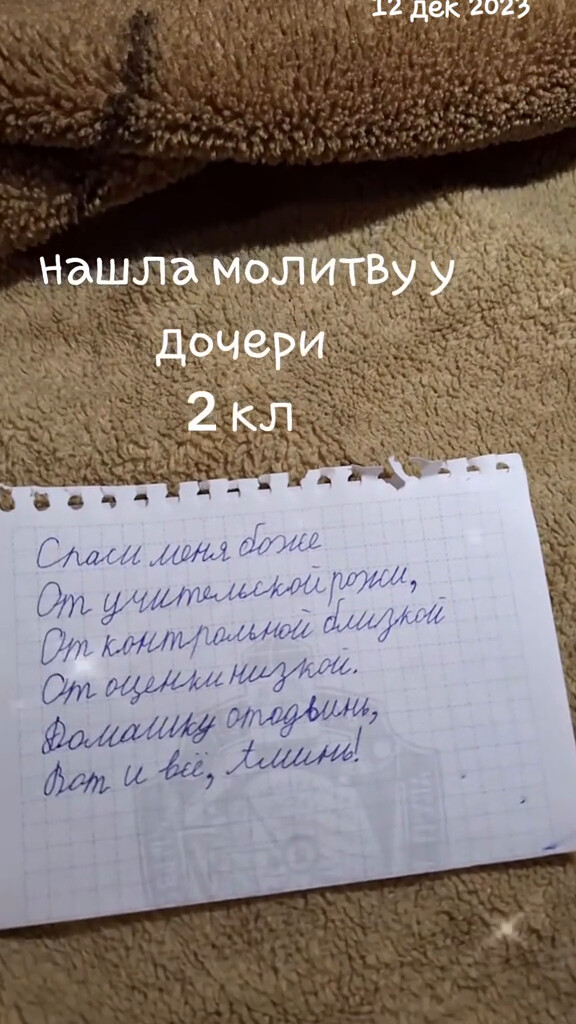 12 дек 2023
нашла молитву у
дочери
2 кл
Спаси меня боже
От учительской рожи,
От контрольной близкой
От оценки низкой.
Домашку отодвинь,
Вот и всё, Аминь!